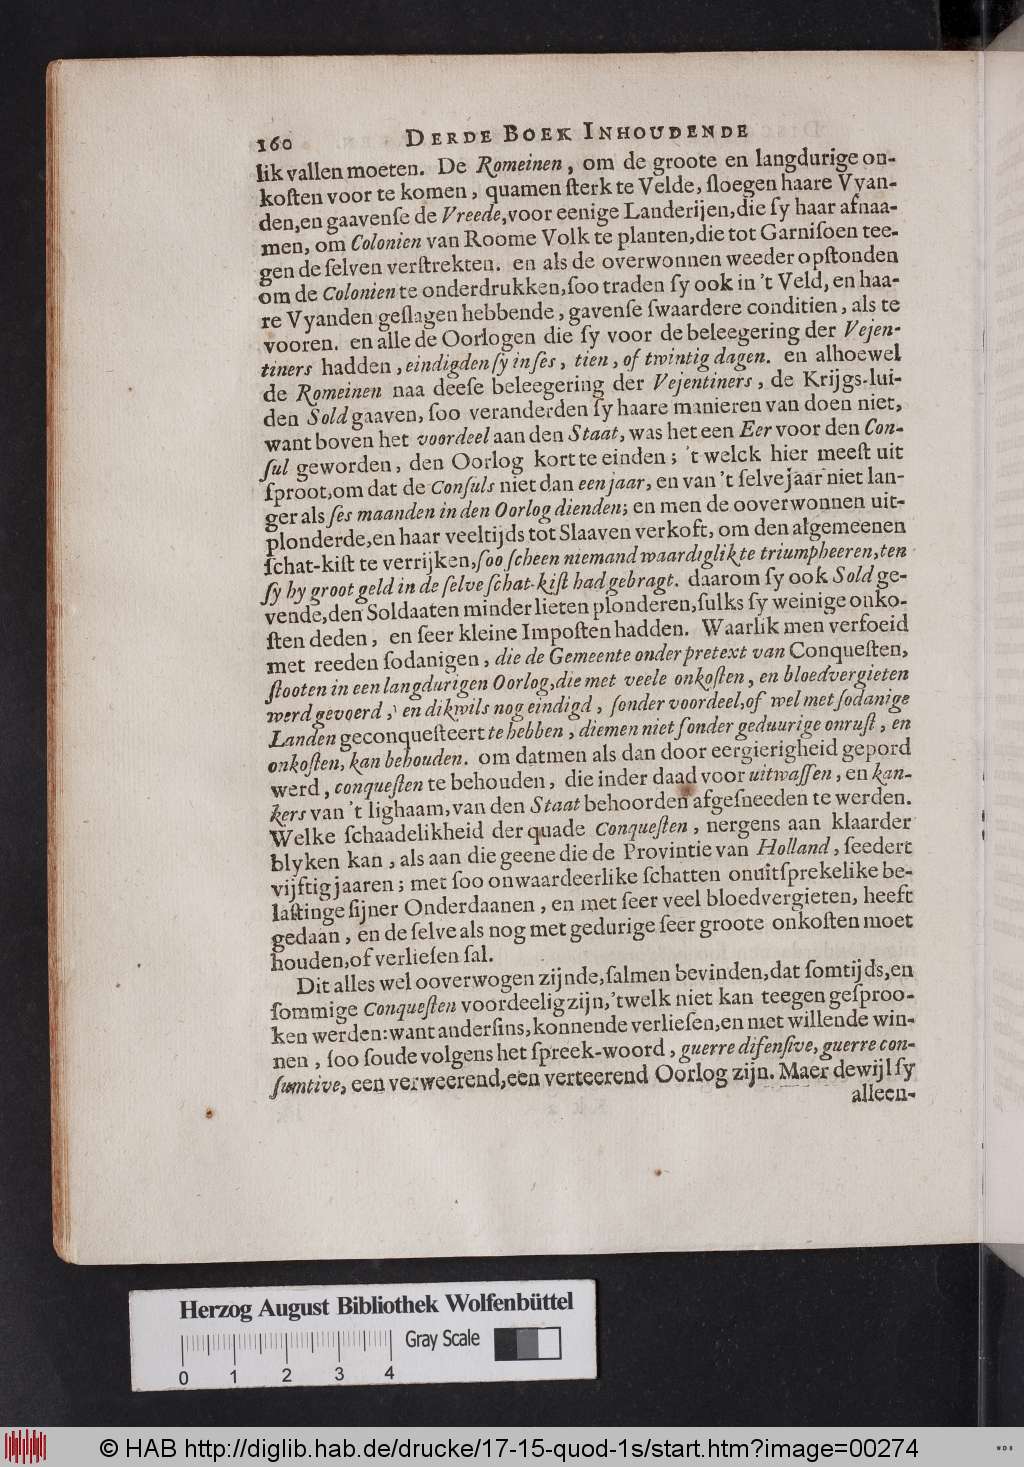 160 DERDE BOEK INHOUDENDE
lik vallen moeten. De Romeinen, om de groote en langdurige on-
koſten voor te komen, quamen ſterk te Velde, ſloegen haare Vyan-
den, en gaavenſe de Vreede, voor eenige Landerijen, die ſy haar afnaa-
men, om Colonien van Roome Volk te planten, die tot Garniſoen tee-
gen de ſelven verſtrekten. en als de overwonnen weeder opſtonden
om de Colonien te onderdrukken, ſoo traden ſy ook in 't Veld, en haa-
re Vyanden geſlagen hebbende, gavenſe ſwaardere conditien, als te
vooren. en alle de Oorlogen die ſy voor de beleegering der Vejen-
tiners hadden, eindigden ſy in ſes, tien, of twintig dagen. en alhoewel
de Romeinen naa deeſe beleegering der Vejentiners, de Krijgs-lui-
den Sold gaaven, ſoo veranderden ſy haare manieren van doen niet,
want boven het voordeel aan den Staat, was het een Eer voor den Con-
ſul geworden, den Oorlog kort te einden; 't welck hier meeſt uit
ſproot, om dat de Conſuls niet dan een jaar, en van 't ſelve jaar niet lan-
ger als ſes maanden in den Oorlog dienden; en men de ooverwonnen uit-
plonderde, en haar veeltijds tot Slaaven verkoft, om den algemeenen
ſchat-kiſt te verrijken, ſoo ſcheen niemand waardiglik te triumpheeren, ten
ſy hy groot geld in de ſelve ſchat-kiſt had gebragt. daarom ſy ook Sold ge-
vende, den Soldaaten minder lieten plonderen, ſulks ſy weinige onko-
ſten deden, en ſeer kleine Impoſten hadden. Waarlik men verfoeid
met reeden ſodanigen, die de Gemeente onder pretext van Conqueſten,
ſlooten in een langdurigen Oorlog, die met veele onkoſten, en bloedvergieten
werd gevoerd, en dikwils nog eindigd, ſonder voordeel, of wel met ſodanige
Landen geconqueſteert te hebben, diemen niet ſonder geduurige onruſt, en
onkoſten, kan behouden. om datmen als dan door eergierigheid gepord
werd, conqueſten te behouden, die inder daad voor uitwaſſen, en kan-
kers van 't lighaam, van den Staat behoorden afgeſneeden te werden.
Welke ſchaadelikheid der quade Conqueſten, nergens aan klaarder
blyken kan, als aan die geene die de Provintie van Holland, ſeedert
vijftig jaaren; met ſoo onwaardeerlike ſchatten onuitſprekelike be-
laſtinge ſijner Onderdaanen, en met ſeer veel bloedvergieten, heeft
gedaan, en de ſelve als nog met gedurige ſeer groote onkoſten moet
houden, of verlieſen ſal.
Dit alles wel ooverwogen zijnde, ſalmen bevinden, dat ſomtijds, en
ſommige Conqueſten voordeelig zijn, 'twelk niet kan teegen geſproo-
ken werden: want anderſins, konnende verlieſen, en niet willende win-
nen, ſoo ſoude volgens het ſpreek-woord, guerre difenſive, guerre con-
ſumtive, een verweerend, een verteerend Oorlog zijn. Maer dewijl ſy
alleen-
Herzog August Bibliothek Wolfenbüttel
Gray Scale
0 1 2 3 4
© HAB http://diglib.hab.de/drucke/17-15-quod-1s/start.htm?image=00274